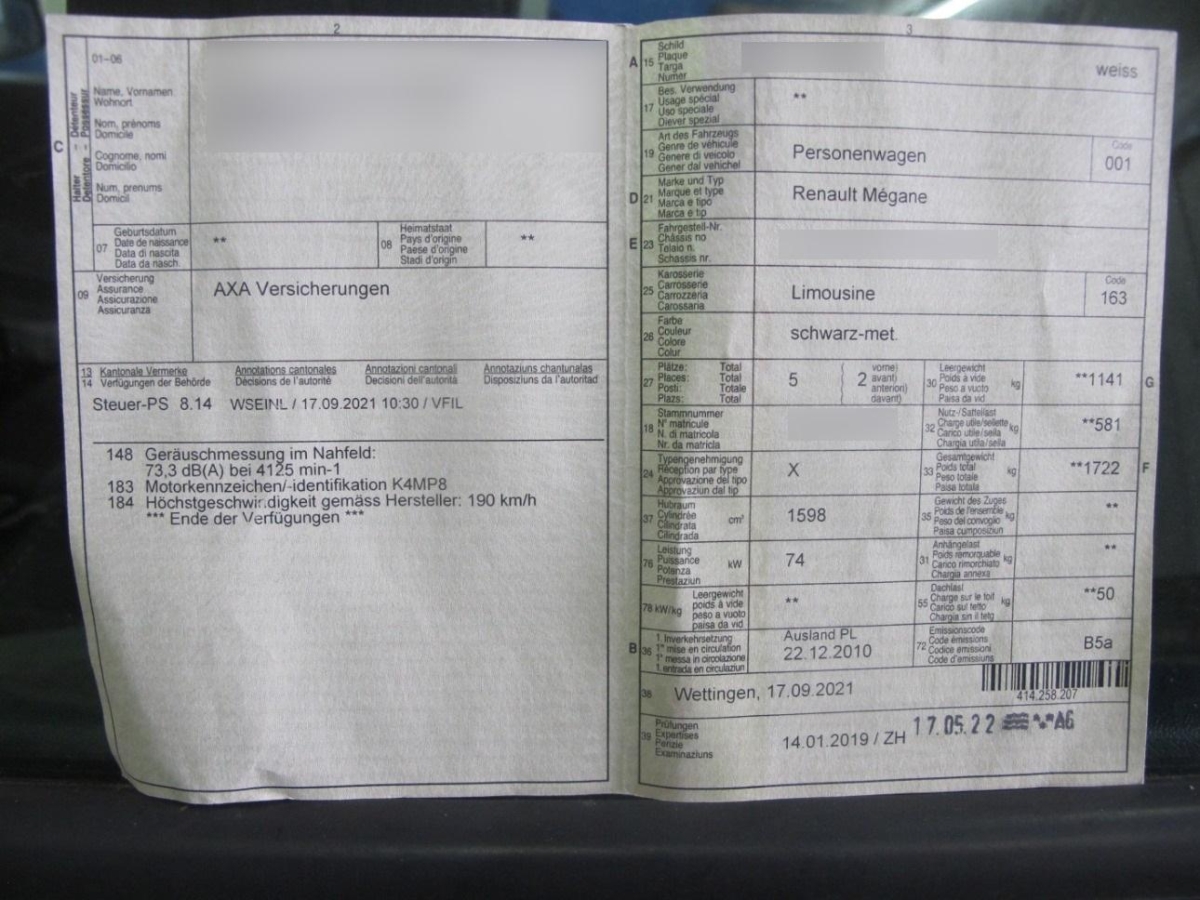 2
01-06
C
Halter - Détenteur
Detentore - Possessur
Name, Vornamen
Wohnort
Nom, prénoms
Domicile
Cognome, nomi
Domicilio
Num, prenums
Domicil
07
Geburtsdatum
Date de naissance
Data di nascita
Data da nasch.
**
08
Heimatstaat
Pays d'origine
Paese d'origine
Stadi d'origin
**
09
Versicherung
Assurance
Assicurazione
Assicuranza
AXA Versicherungen
13 Kantonale Vermerke Annotations cantonales Annotazioni cantonali Annotaziuns chantunalas
14 Verfügungen der Behörde Décisions de l'autorité Decisioni dell'autorità Disposiziuns da l'autoritad
Steuer-PS 8.14 WSEINL / 17.09.2021 10:30 / VFIL
148 Geräuschmessung im Nahfeld:
73,3 dB(A) bei 4125 min-1
183 Motorkennzeichen/-identifikation K4MP8
184 Höchstgeschwir.digkeit gemäss Hersteller: 190 km/h
*** Ende der Verfügungen ***
3
A 15
Schild
Plaque
Targa
Numer
weiss
17
Bes. Verwendung
Usage spécial
Uso speciale
Diever spezial
**
19
Art des Fahrzeugs
Genre de véhicule
Genere di veicolo
Gener dal vehichel
Personenwagen
Code
001
D 21
Marke und Typ
Marque et type
Marca e tipo
Marca e tip
Renault Mégane
E 23
Fahrgestell-Nr.
Châssis no
Telaio n.
Schassis nr.
25
Karosserie
Carrosserie
Carrozzeria
Carossaria
Limousine
Code
163
26
Farbe
Couleur
Colore
Colur
schwarz-met.
27
Plätze: Total
Places: Total
Posti: Totale
Plazs: Total
5
( 2
vorne)
avant)
anteriori)
davant)
30
Leergewicht
Poids à vide
Peso a vuoto
Paisa da vid
kg
**1141
G
18
Stammnummer
N° matricule
N. di matricola
Nr. da matricla
32
Nutz-/Sattellast
Charge utile/sellette
Carico utile/sella
Chargia utila/sella
kg
**581
24
Typengenehmigung
Réception par type
Approvazione del tipo
Approvaziun dal tip
X
33
Gesamtgewicht
Poids total
Peso totale
Paisa totala
kg
**1722
F
37
Hubraum
Cylindrée
Cilindrata
Cilindrada
cm³
1598
35
Gewicht des Zuges
Poids de l'ensemble
Peso del convoglio
Paisa cumposiziun
kg
**
76
Leistung
Puissance
Potenza
Prestaziun
kW
74
31
Anhängelast
Poids remorquable
Carico rimorchiato
Chargia annexa
kg
**
78 kW/kg
Leergewicht
poids à vide
peso a vuoto
paisa da vid
**
55
Dachlast
Charge sur le toit
Carico sul tetto
Chargia sin il tetg
kg
**50
B 36
1. Inverkehrsetzung
1re mise en circulation
1a messa in circolazione
1. entrada en circulaziun
Ausland PL
22.12.2010
72
Emissionscode
Code émissions
Codice emissioni
Code d'emissiuns
B5a
38
Wettingen, 17.09.2021
414.258.207
39
Prüfungen
Expertises
Perizie
Examinaziuns
14.01.2019 / ZH
17.05.22 AG